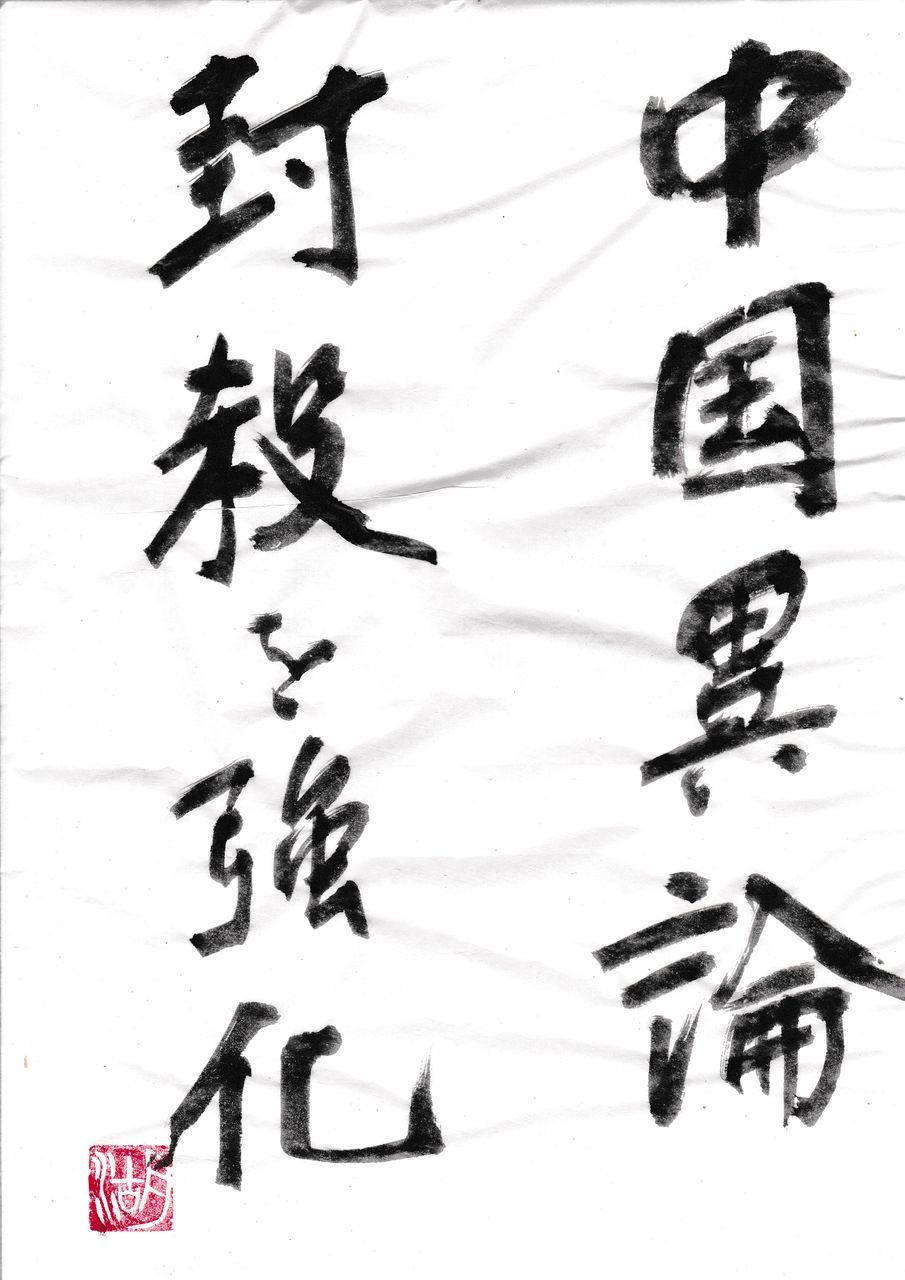 中国異論
封殺を強化
湖